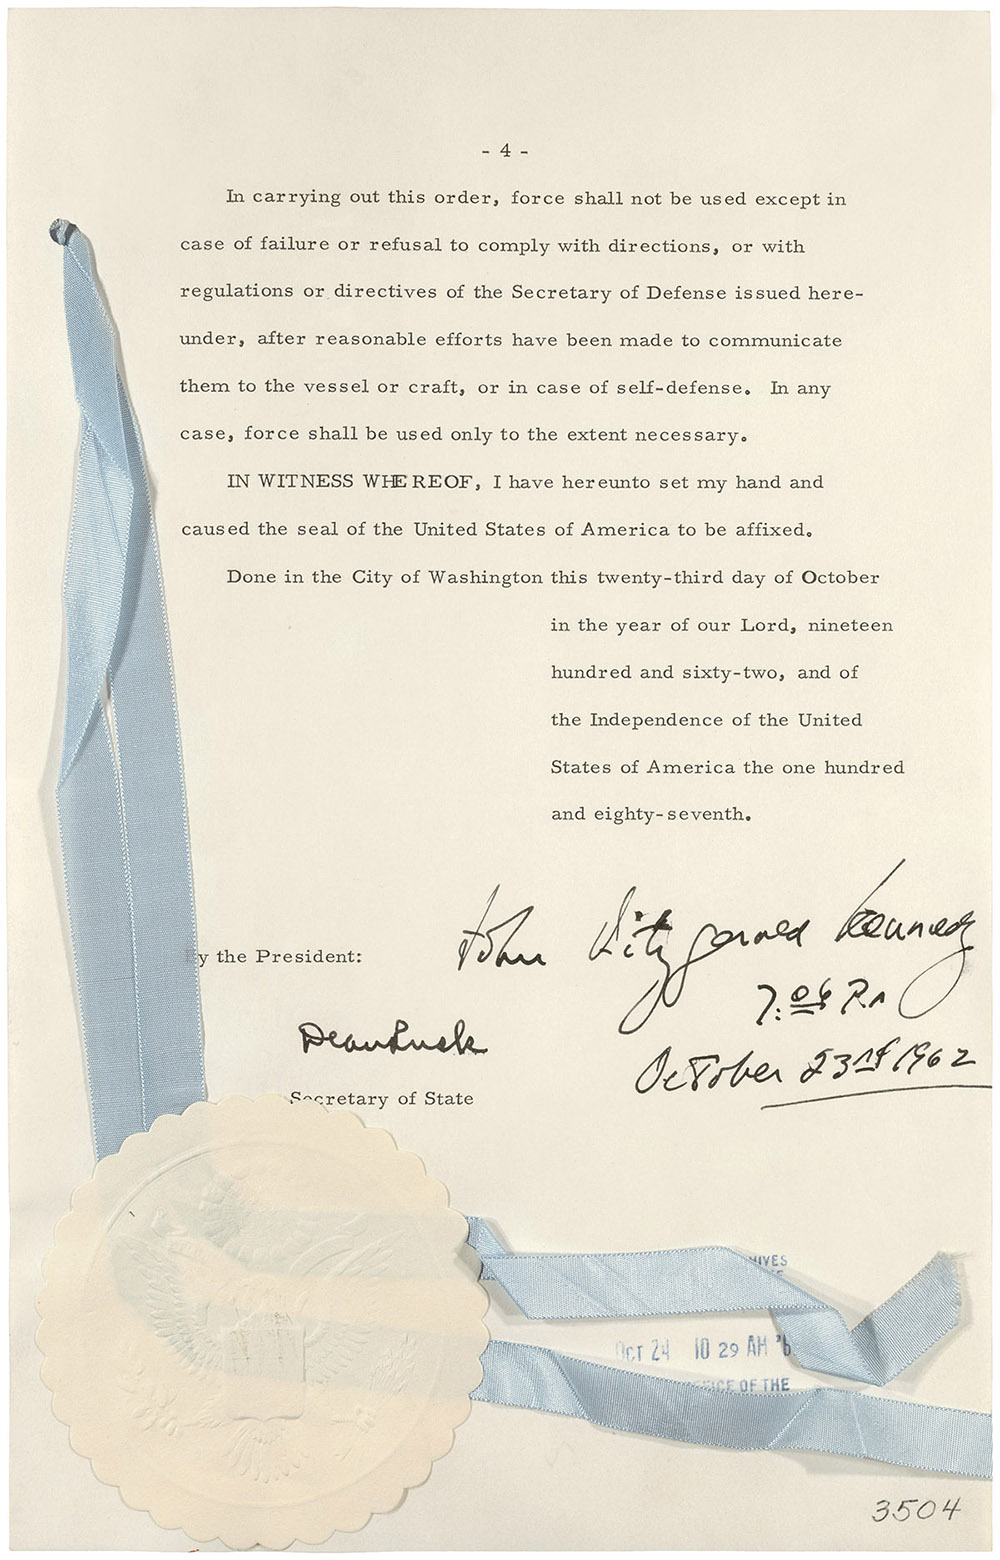 - 4 -
In carrying out this order, force shall not be used except in
case of failure or refusal to comply with directions, or with
regulations or directives of the Secretary of Defense issued here-
under, after reasonable efforts have been made to communicate
them to the vessel or craft, or in case of self-defense. In any
case, force shall be used only to the extent necessary.
IN WITNESS WHEREOF, I have hereunto set my hand and
caused the seal of the United States of America to be affixed.
Done in the City of Washington this twenty-third day of October
in the year of our Lord, nineteen
hundred and sixty-two, and of
the Independence of the United
States of America the one hundred
and eighty-seventh.
John Fitzgerald Kennedy
By the President:
7:06 P.m
Dean Rusk
October 23rd 1962
Secretary of State
Oct 24 10 29 AM '6
OF THE
3504